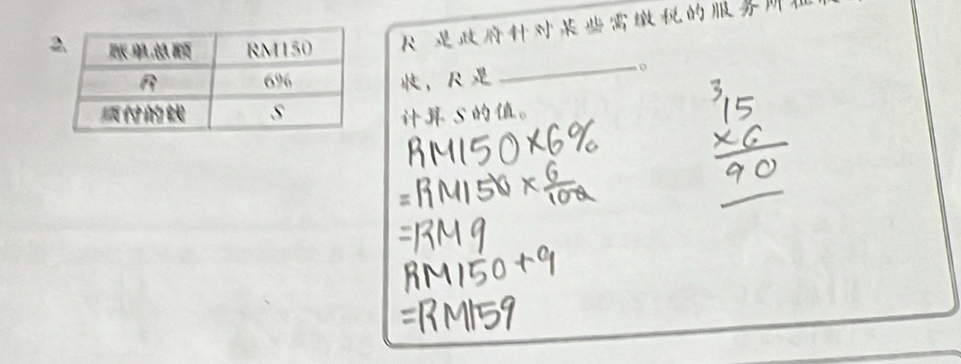 R 是政府针对某些需缴税的服务所
2.
账单总额 RM150
R 6%
须付的钱 S
收，R 是 ________。
计算 S 的值。
RM150×6%
=RM150×6/100
=RM9
RM150+9
=RM159
3
15
×6
90